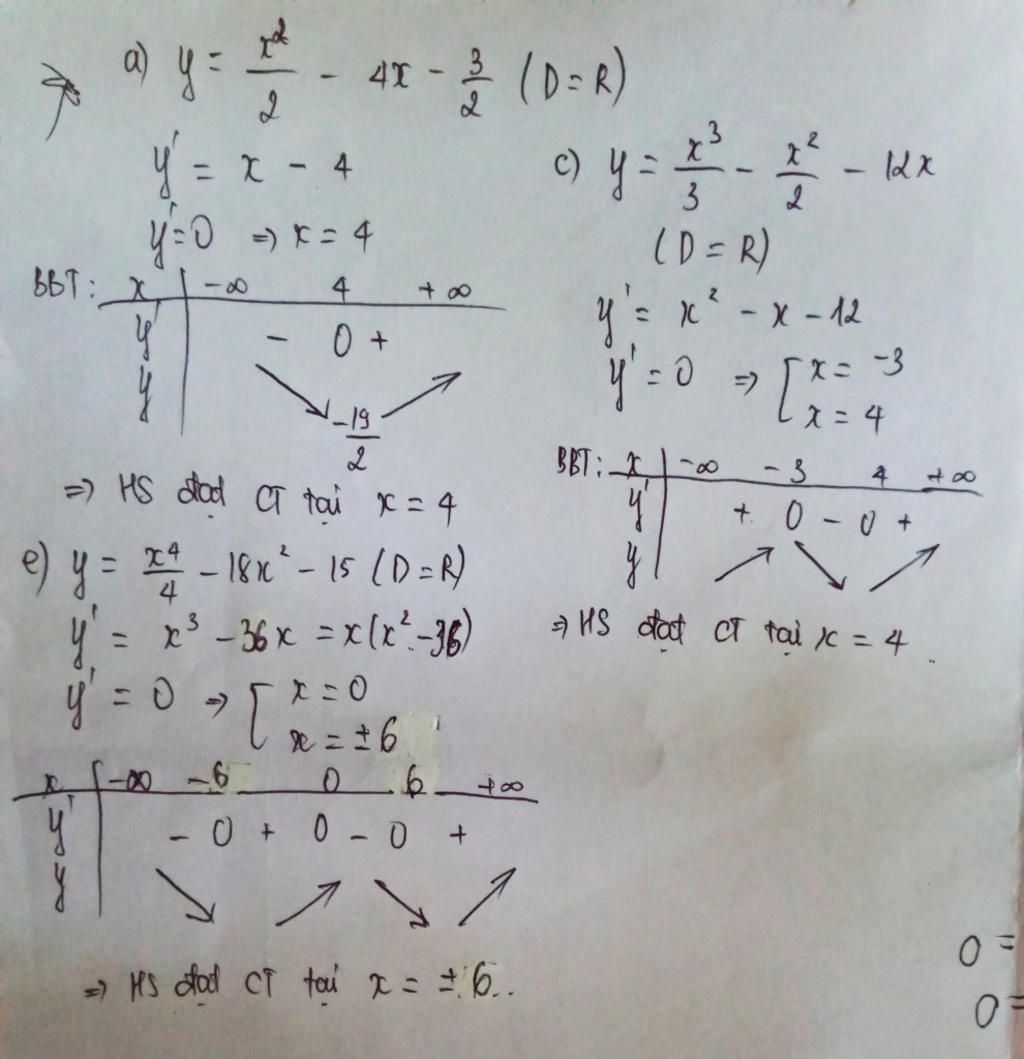 a) y = x²/2 - 4x - 3/2 (D = R)
y' = x - 4
y' = 0 => x = 4
BBT: x | -∞ 4 +∞
y' | - 0 +
y | ↘ -19/2 ↗
=> HS đạt CT tại x = 4
c) y = x³/3 - x²/2 - 12x
(D = R)
y' = x² - x - 12
y' = 0 => [ x = -3
x = 4
BBT: x | -∞ -3 4 +∞
y' | + 0 - 0 +
y | ↗ ↘ ↗
=> HS đạt CT tại x = 4.
e) y = x⁴/4 - 18x² - 15 (D = R)
y' = x³ - 36x = x(x² - 36)
y' = 0 => [ x = 0
x = ±6
x | -∞ -6 0 6 +∞
y' | - 0 + 0 - 0 +
y | ↘ ↗ ↘ ↗
=> HS đạt CT tại x = ±6..
0 =
0 =